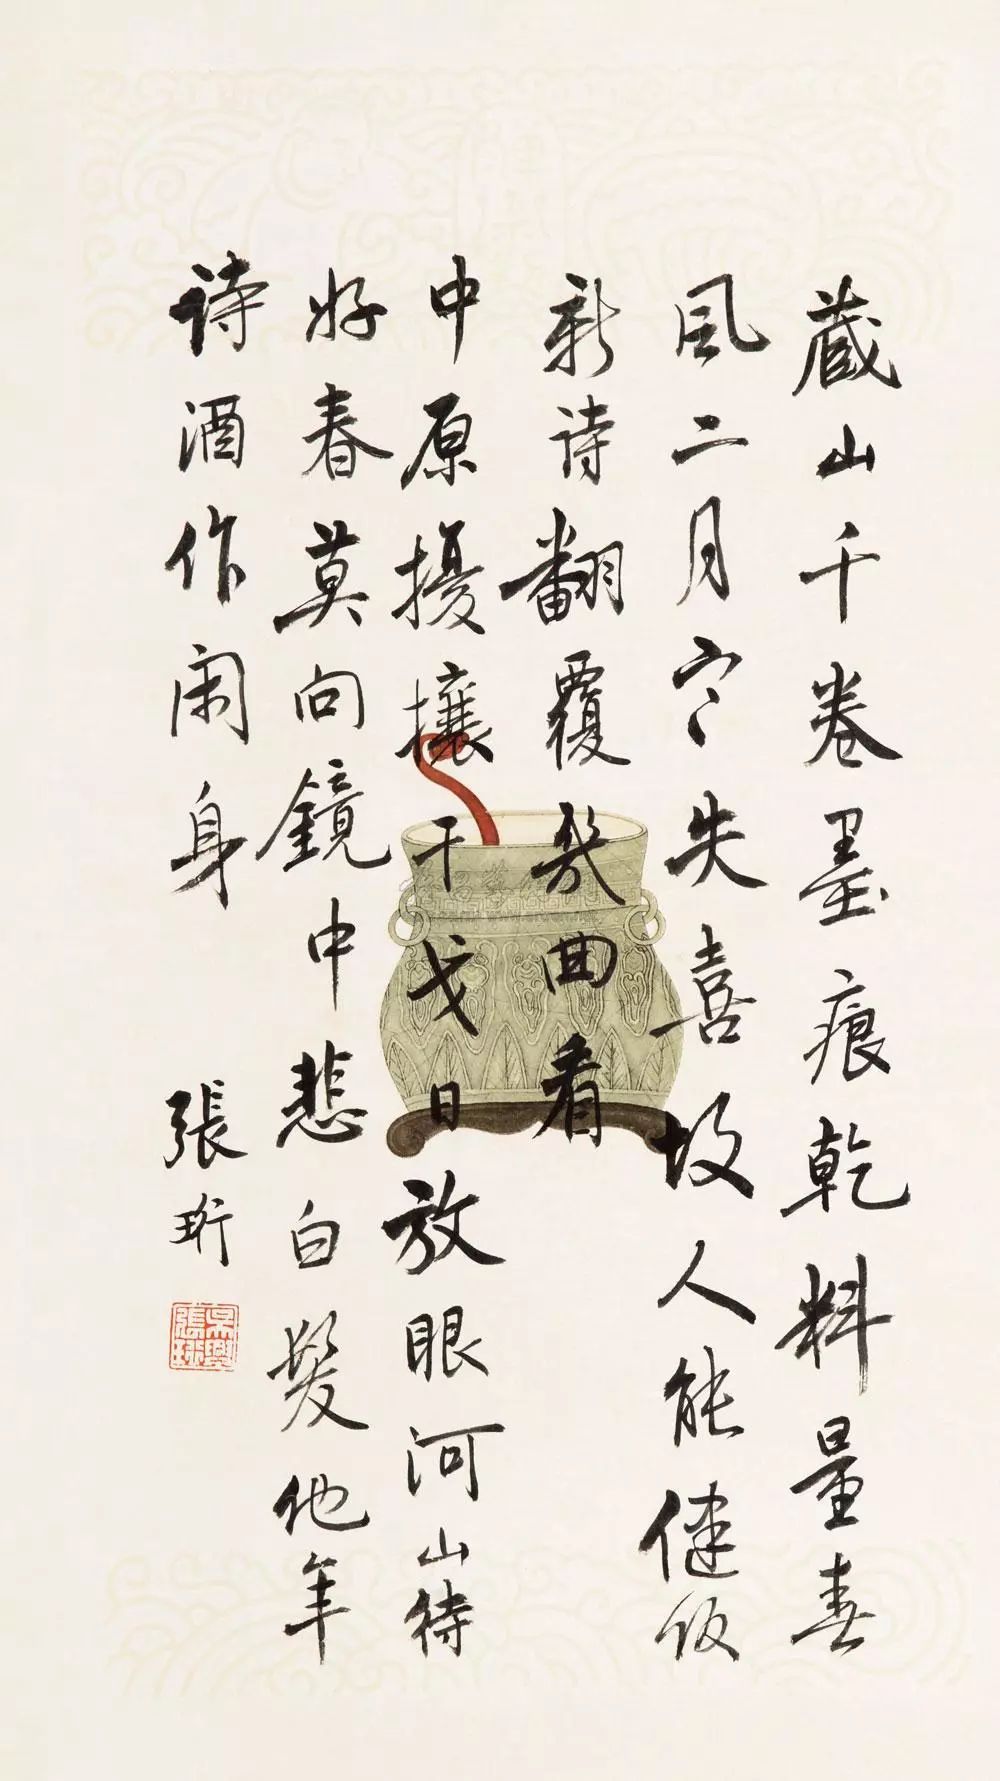 藏山千卷墨痕乾料量春
風二月寒失喜故人能健饭
新诗翻覆幾回看
中原擾攘干戈日放眼河山待
好春莫向鏡中悲白髮他年
诗酒作闲身 張珩
吳興張珩